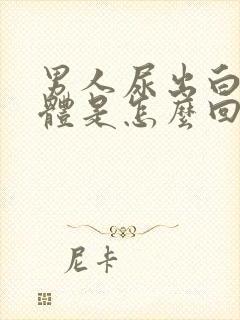 男人尿出白
體是怎麼回
尼卡